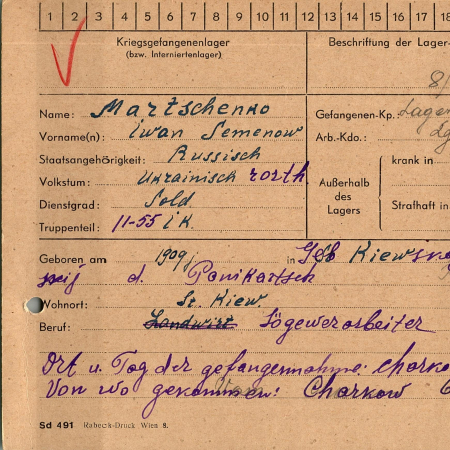 1 2 3 4 5 6 7 8 9 10 11 12 13 14 15 16 17 18
Kriegsgefangenenlager
(bzw. Interniertenlager)
Beschriftung der Lager-
8/
Name: Martschenko
Gefangenen-Kp.: Lager
Vorname(n): Iwan Semenow
Arb.-Kdo.:
Staatsangehörigkeit: Russisch
krank in
Volkstum: Ukrainisch rorth
Außerhalb
des
Lagers
Dienstgrad: Sold
Strafhaft in
Truppenteil: 11-55 i.K.
Geboren am 1909 in Geb Kiew
d. Ponikartsch
Wohnort: St. Kiew.
Beruf: Landwirt Sögewerarbeiter
Ort u. Tag der gefangennahme: charko
Von wo gekommen: Charkow
Sd 491 Rabeck-Druck Wien 8.